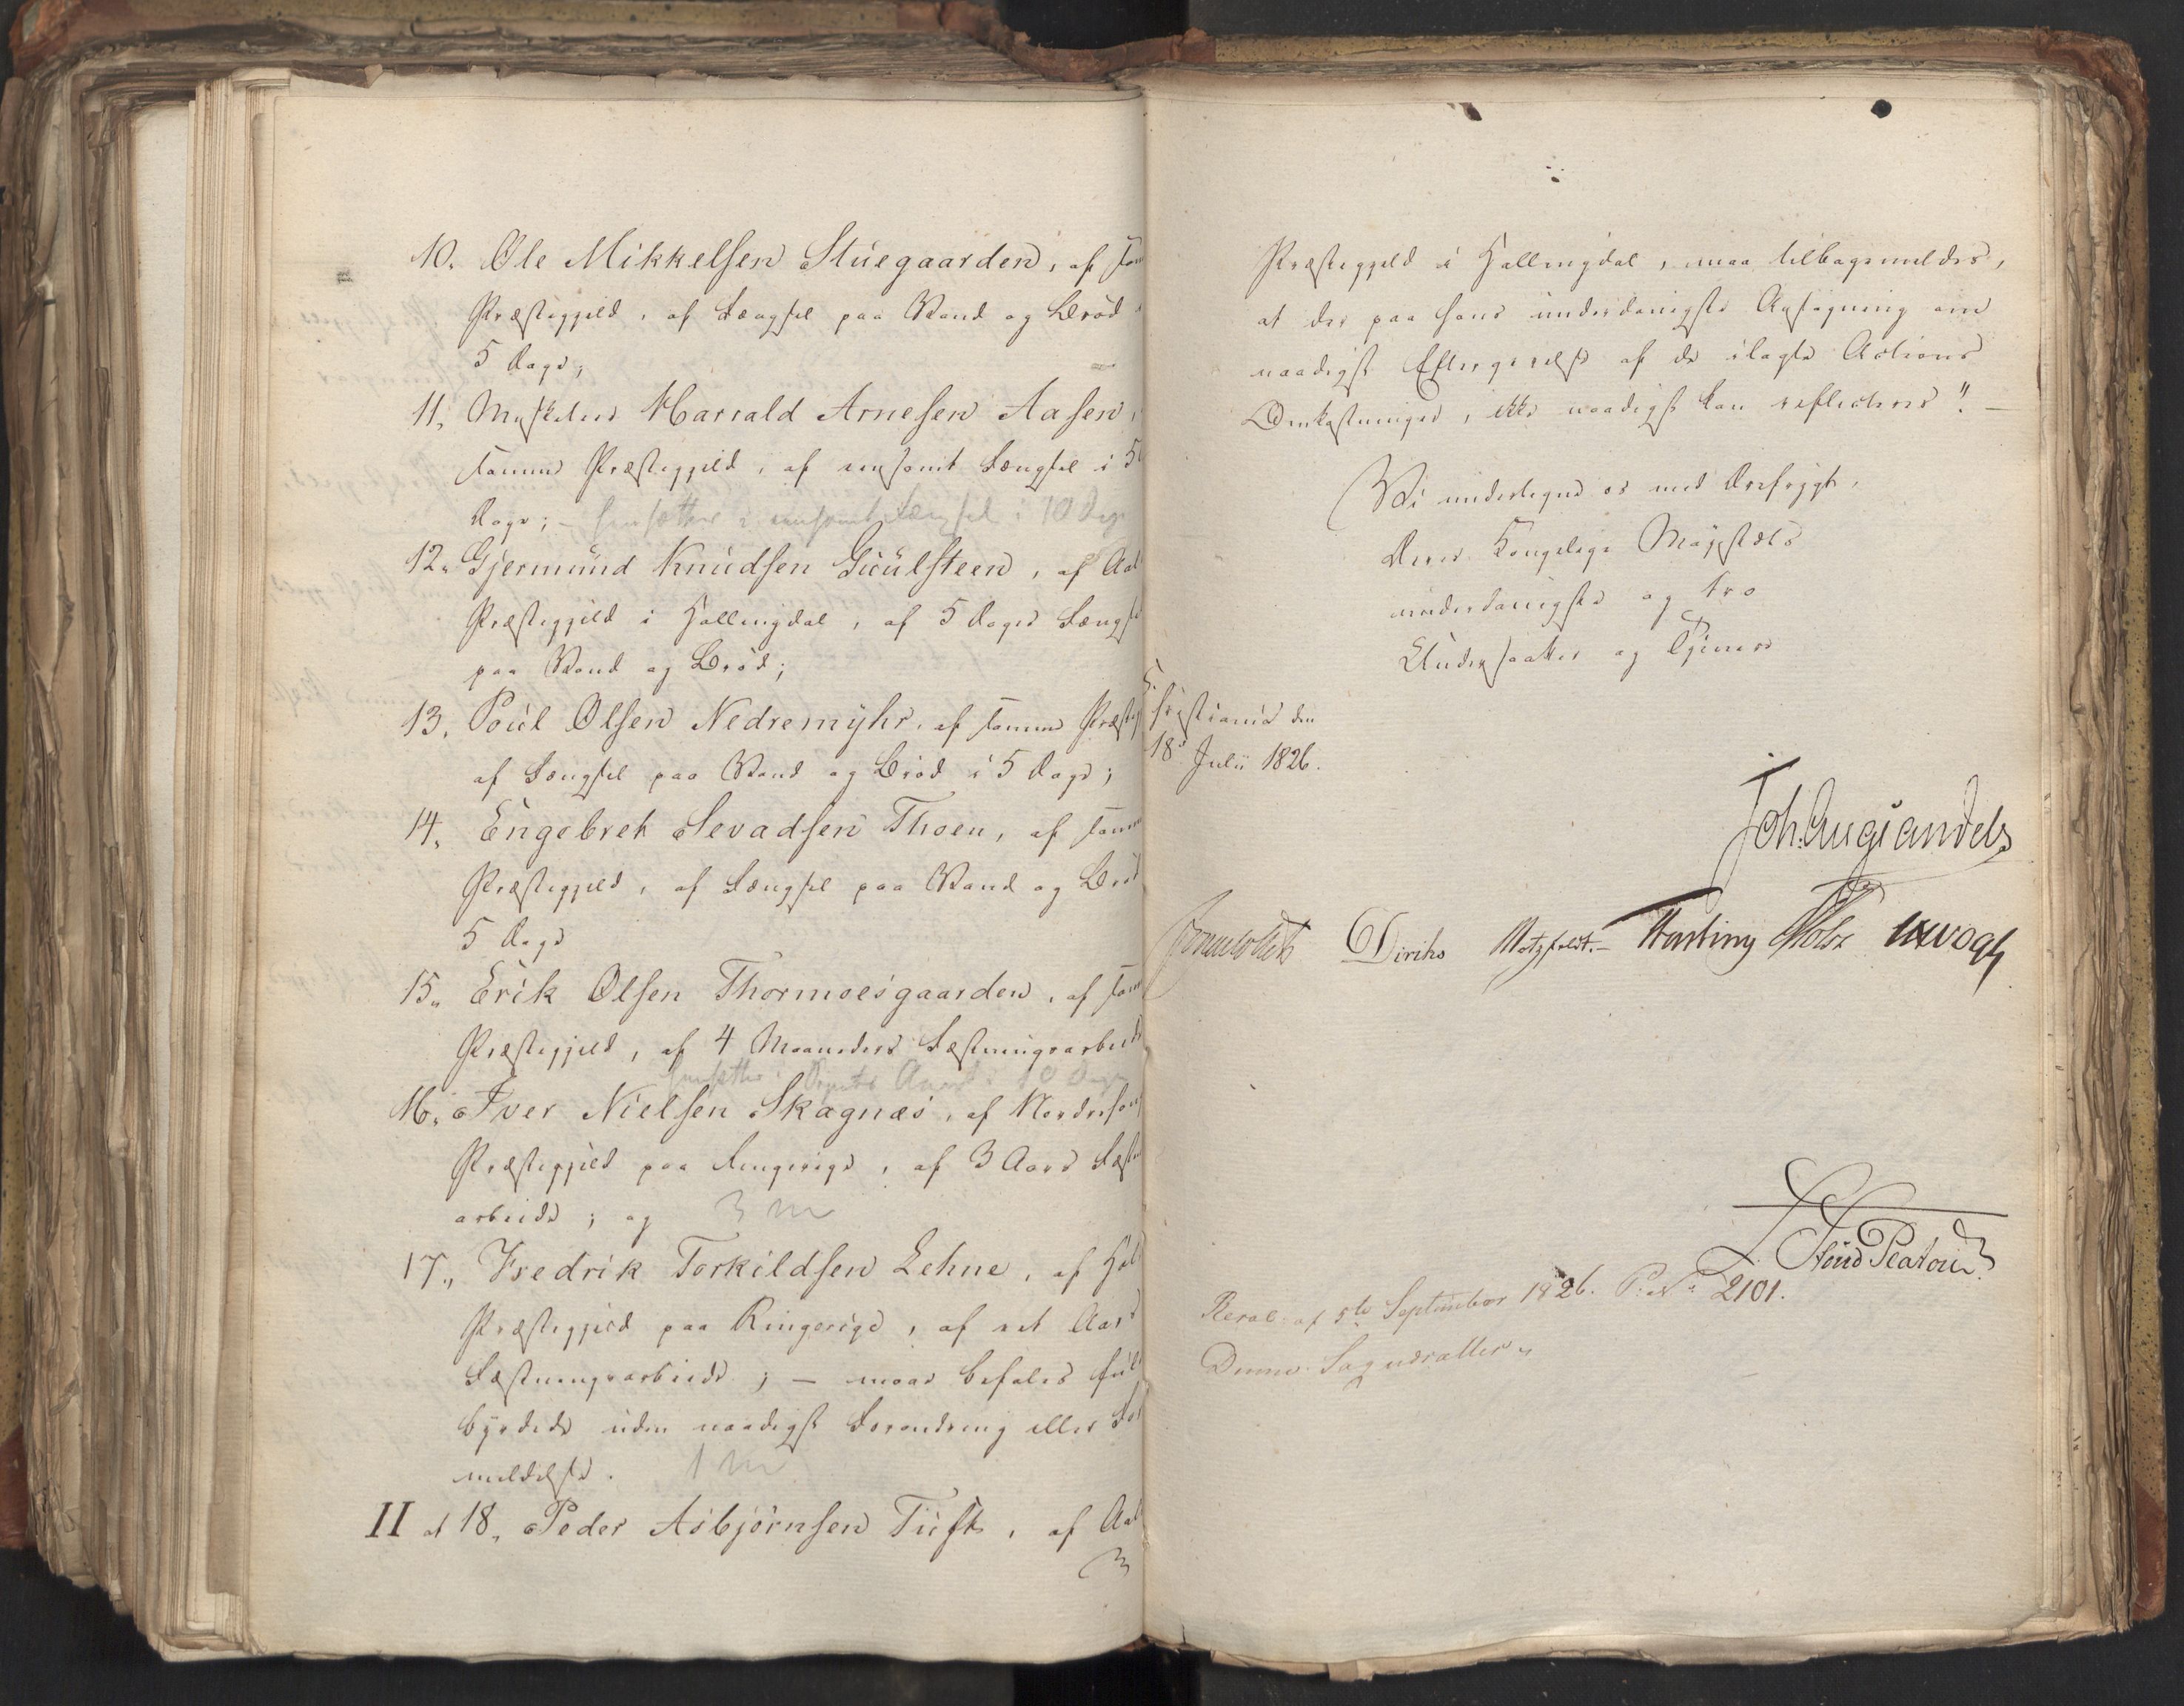 10. Ole Mikkelsen Stuegaarden, af sam
Præstegjeld, af Fængsel paa Vand og Brød i
5 Dage;
11, Musketeer Harrald Arnesen Aasen,
samme Præstegjeld, af eensomt Fængsel i 5
Dage; - hensættes i eensomt Fængsel i 10 Dage
12. Gjermund Knudsen Guulsteen, af Aal
Præstegjeld i Hallingdal, af 5 Dages Fængse
paa Vand og Brød;
13, Poul Olsen Nedremyhr, af samme Præsteg
af Fængsel paa Vand og Brød i 5 Dage;
14, Engebret Sevadsen Thoen, af samm
Præstegjeld, af Fængsel paa Vand og Brød
5 Dage
15, Erik Olsen Thormoesgaarden, af sam
Præstegjeld, af 4 Maaneders Fæstningsarbeide
hensættes i Arrest i 10 Dage
16, Iver Nielsen Skagnæs, af Nordrehou
Præstegjeld paa Ringerige, af 3 Aars Fæstn
arbeide; og 3 m
17, Fredrik Torkildsen Lehne, af Hol
Præstegjeld paa Ringerige, af eet Aars
Fæstningsarbeide; - maae befales fuld
byrdede uden naadigst Forandring eller For
mildelse. 1 m
II at 18, Peder Asbjørnsen Tufte, af Aal
Præstegjeld i Hallingdal, maa tilbagemeldes,
at der paa hans underdanigste Ansøgning om
naadigst Eftergivelse af de ilagte Actions
Omkostninger, ikke naadigst kan reflecteres". -
Vi undertegne os med Ærefrygt,
Deres Kongelige Majestæts
underdanigste og tro
Undersaatter og Tjenere
Christiania den
18de Julii 1826.
Joh. Aug. Sandels
Sommerhielm Diriks Motzfeldt. - Fasting Holst JHVogt
Resol: af 5te September 1826. P: No 2101.
Denne Sag udsættes